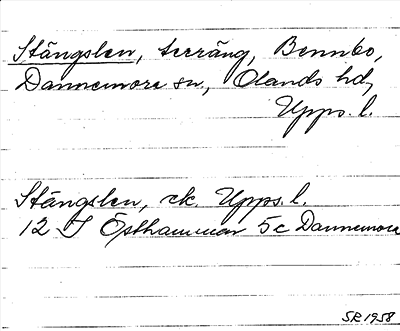 Stängslen, terräng, Bennbo,
Dannemora sn., Olands hd,
Upps. l.
Stängslen, rk. Upps. l.
12 I Östhammar 5c Dannemora
SR 1958